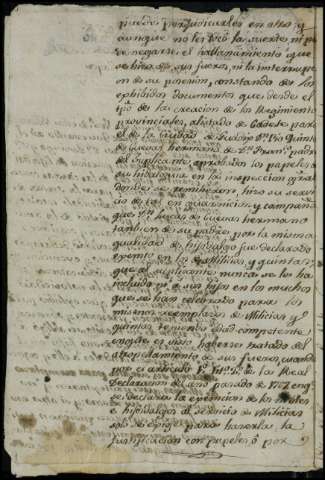 puede perjudicarles en otro, y
aunque no les dió la suerte, ni pu
de negarse el allanamiento que
se hizo de sus fueros, ni la interrupci
on de su posesion, constando de los
exhibidos documentos que desde el
tpo. de la creacion de los Regimientos
Provinciales, alistado de Cadete para
el de la Ciudad de Dn.
de Cuevas hermano de Dn. Juan padre
del suplicante aprobados los papeles de
su hidalguia en la inspeccion gral.
donde se remitieron, hizo su servi
cio de tal en guarnicion, y campaña
que Dn. Lucas de Cuevas hermano
tambien de su padre por la misma
qualidad de hijodalgo fue declarado
exento en las Milicias, y quintas
que al suplicante nunca se le ha
incluido ni a sus hijos en los muchos
que se han celebrado para los
mismos reemplazos de Milicias, y
quintas teniendo edad competente
conque es visto haberse tratado del
atropellamiento de sus fueros, cuando
por el articulo de la Real
Declaracion del año pasado de 1767 en q.
se declara la esencion de los nobles
e hijosdalgo al servicio de Milicias
solo se exige para hacerla la
justificacion con papeles, ó por